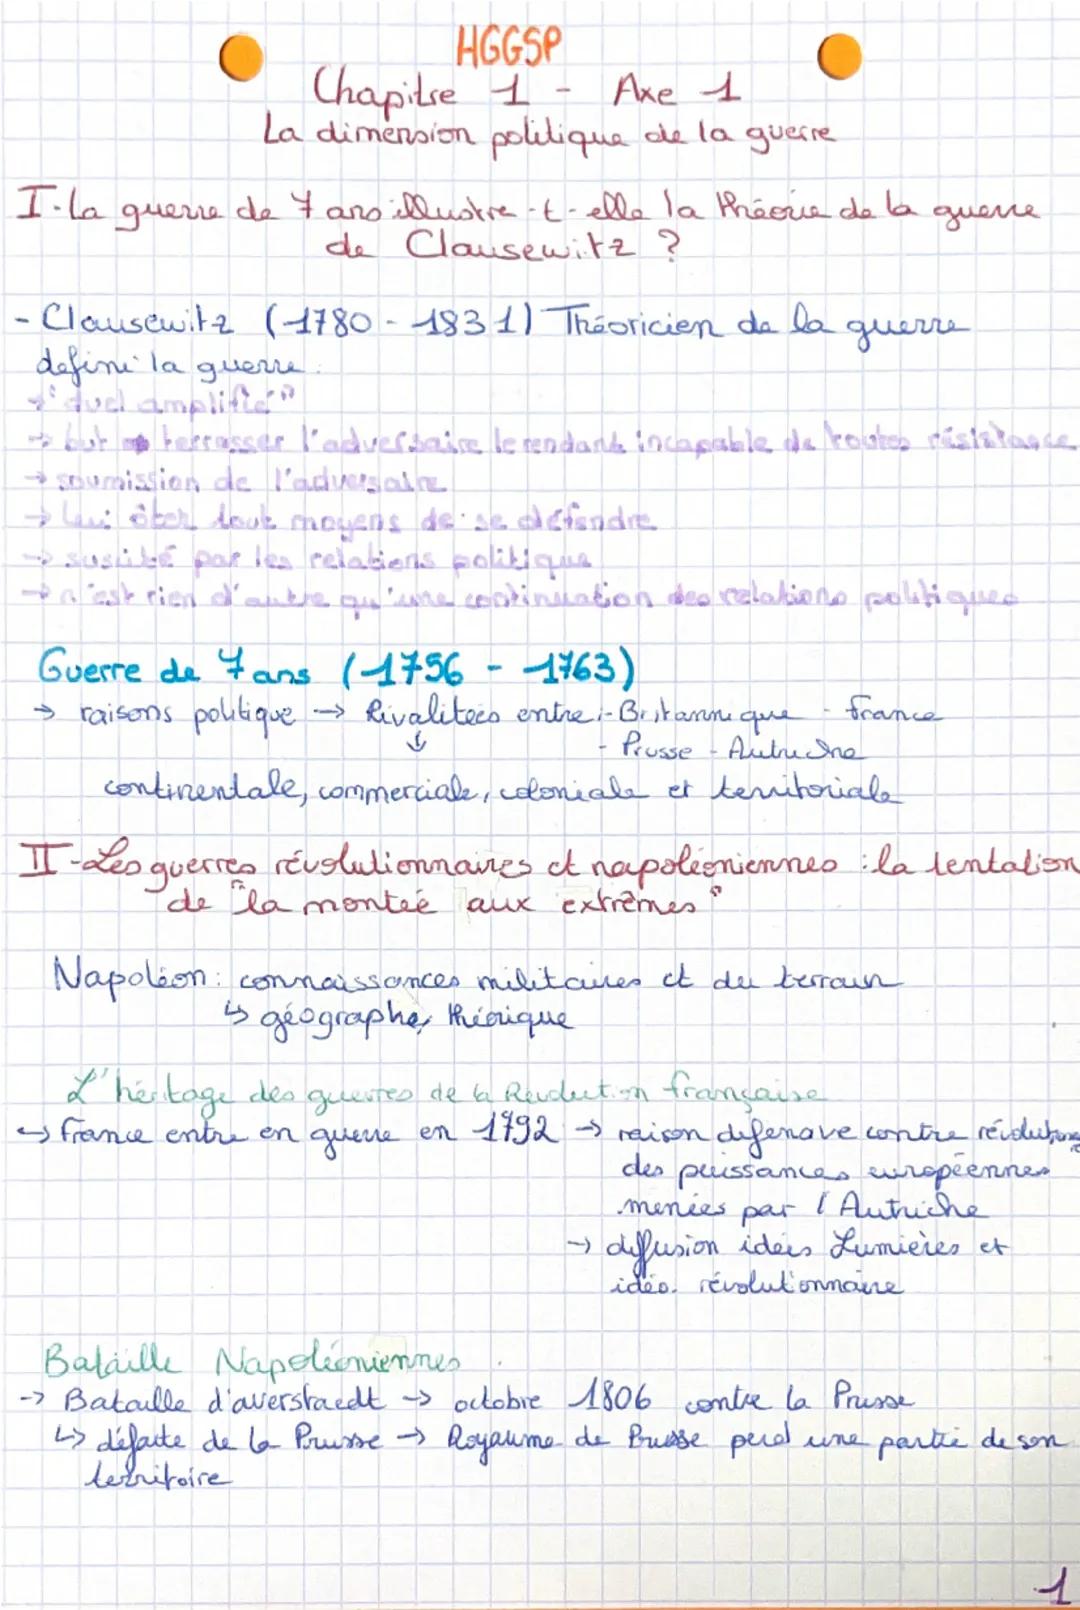 HGGSP
Chapitre 1 - Axe 1
La dimension politique de la guerre
I. La guerre de 7 ans illustre-t-elle la théorie de la guerre
de Clausewitz ?
- Clausewitz (1780 - 1831) Théoricien de la guerre
défini la guerre :
→ "duel amplifié"
→ but terrasser l'adversaire le rendant incapable de toutes résistance
→ soumission de l'adversaire
→ lui ôter tout moyens de se défendre
→ susité par les relations politique
→ n'est rien d'autre qu'une continuation des relations politiques
Guerre de 7 ans (1756 - 1763)
→ raisons politique → Rivalitées entre :- Britannique - France
↓ - Prusse - Autriche
continentale, commerciale, coloniale et territoriale
II - Les guerres révolutionnaires et napoléoniennes : la tentation
de "la montée aux extrêmes"
Napoléon : connaissances militaires et du terrain
↳ géographe, théorique
L'héritage des guerres de la Révolution française
↪ France entre en guerre en 1792 → raison défensive contre révolution
des puissances européennes
menées par l'Autriche
→ diffusion idées Lumières et
idéo. révolutionnaire
Bataille Napoléoniennes
-> Bataille d'averstaedt -> octobre 1806 contre la Prusse
↳ défaite de la Prusse → Royaume de Prusse perd une partie de son
territoire
1